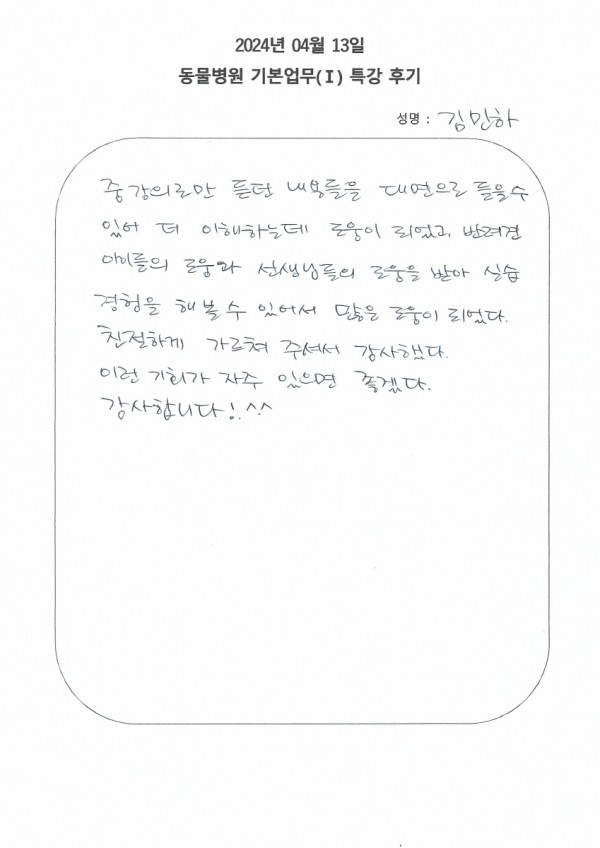 2024년 04월 13일
동물병원 기본업무(I) 특강 후기
성명 : 김민하
줌강의로만 듣던 내용들을 대면으로 들을수
있어 더 이해하는데 도움이 되었고 반려견
아이들의 도움과 선생님들의 도움을 받아 실습
경험을 해볼 수 있어서 많은 도움이 되었다.
친절하게 가르쳐 주셔서 감사했다.
이런 기회가 자주 있으면 좋겠다.
감사합니다!^^